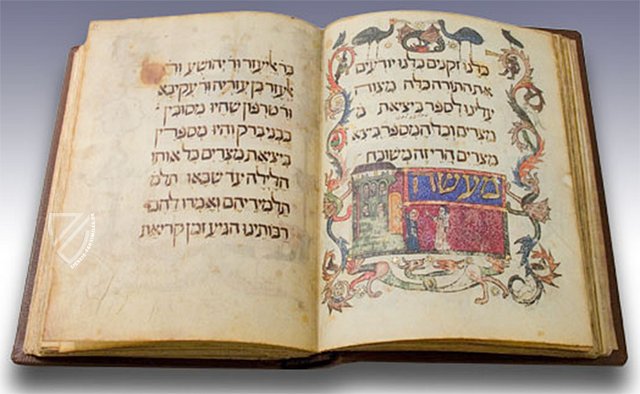 כלנו זקנים כלנו יודעים
את התורה כלה מצוה
עלינו לספר ביציאת מ
מצרים וכל המספר ביציא
מצרים הרי זה משובח
מעשה
בר אליעזר ור יהושע ור
אלעזר בן עזריה ור עקיבא
ור טרפון שהיו מסובין
בבני ברק והיו מספרין
ביציאת מצרים כל אותו
הלילה עד שבאו תלמ
תלמידיהם ואמרו להם
רבותינו הגיע זמן קריאת